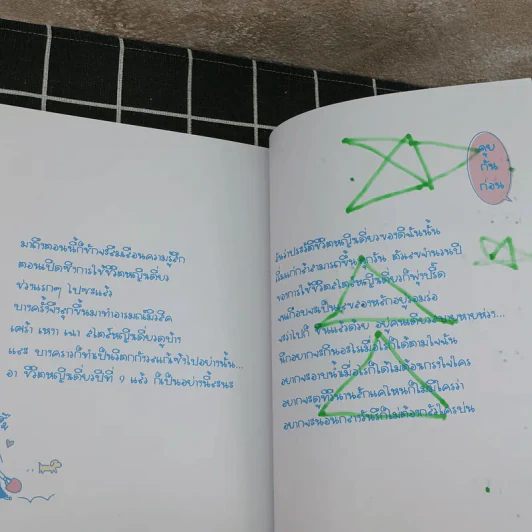 มาถึงตอนนี้ก็ชักจะลืมเลือนความรู้สึก
ตอนเปิดซิงการใช้ชีวิตหญิงเดี่ยว
ช่วงแรกๆ ไปซะแล้ว
บางครั้งจึงลุกขึ้นมาทำอารมณ์มิวสิค
เศร้า เหงา เนา สไตล์หญิงเดี่ยวดูบ้าง
และ บางคราวก็ทำเป็นลืมตาก้วงนกันซ้ำไปอย่างนั้น...
อา ชีวิตหญิงเดี่ยวปีที่ 9 แล้ว ก็เป็นอย่างนี้ละนะ
คุย
กัน
ก่อน
ประวัติชีวิตหญิงเดี่ยวของดิฉันนั้น
ขึ้นทุกวัน ด้วยจำนวนปี
ของการใช้ชีวิตสไตล์หญิงเดี่ยวก็พุ่งปรี๊ด
ขึ้นแล้วด้วย อยู่คนเดียวสบายหายห่วง...
นึกอยากจะกินอะไรเมื่อไรก็ได้ตามใจฉัน
อยากจะอาบน้ำเมื่อไรก็ได้ไม่ต้องเกรงใจใคร
อยากจะดูทีวีนานสักแค่ไหนก็ไม่มีใครว่า
อยากจะนอนกลางวันก็ไม่ต้องกลัวใครบ่น